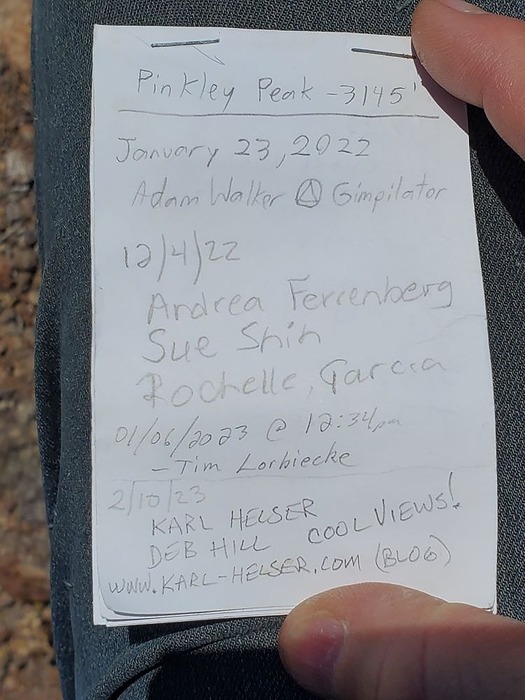 Pinkley Peak - 3145'
January 23, 2022
Adam Walker Gimpilator
12/4/22
Andrea Ferrenberg
Sue Shin
Rochelle Garcia
01/06/2023 @ 12:34pm
- Tim Lorbiecke
2/10/23
KARL HELSER
DEB HILL COOL VIEWS!
WWW.KARL-HELSER.COM (BLOG)